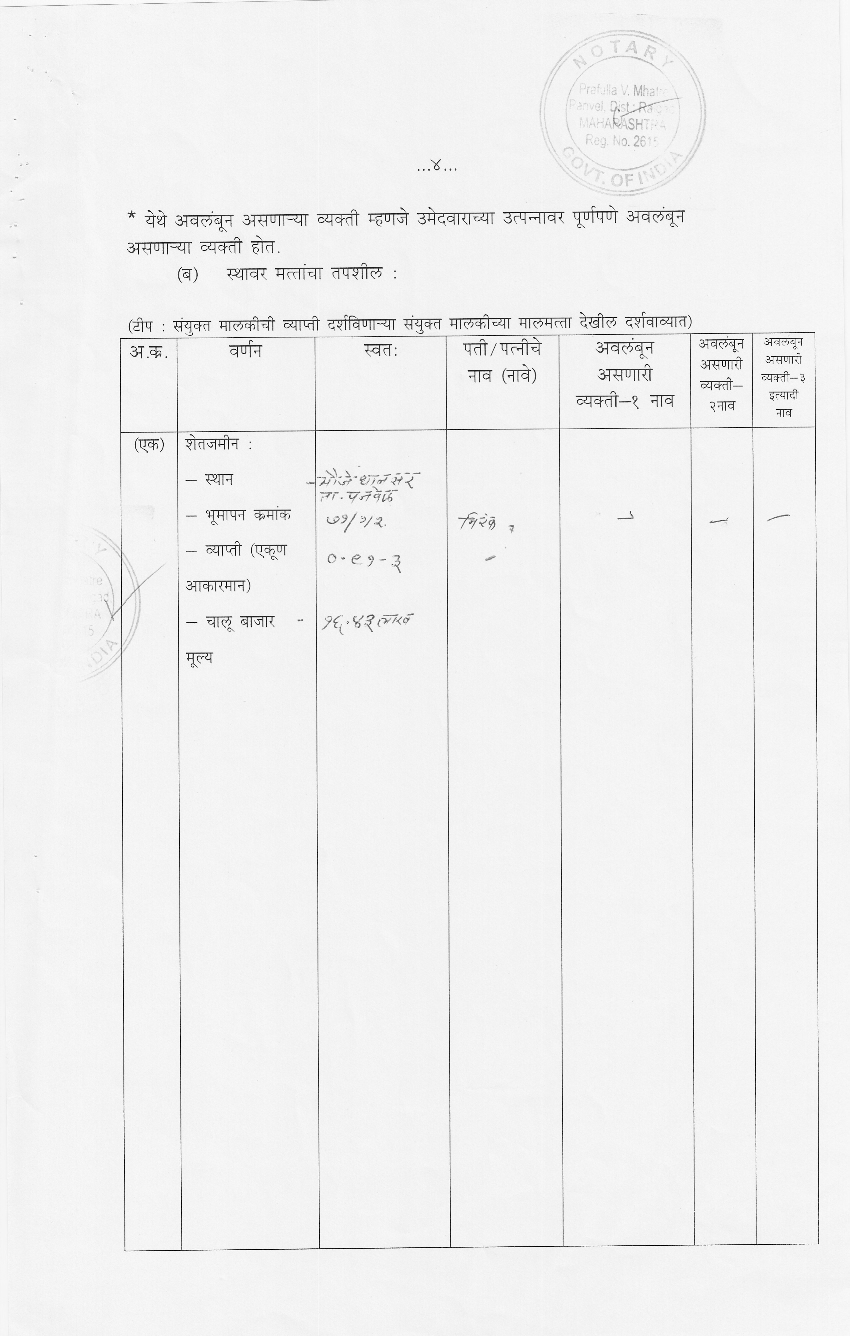 NOTARY
Prafulla V. Mhatre
Panvel, Dist.: Raigad
MAHARASHTRA
Reg. No. 2615
GOVT. OF INDIA
...४...
* येथे अवलंबून असणाऱ्या व्यक्ती म्हणजे उमेदवाराच्या उत्पन्नावर पूर्णपणे अवलंबून
असणाऱ्या व्यक्ती होत.
(ब) स्थावर मत्तांचा तपशील :
(टीप : संयुक्त मालकीची व्याप्ती दर्शविणाऱ्या संयुक्त मालकीच्या मालमत्ता देखील दर्शवाव्यात)
अ.क्र.
वर्णन
स्वत:
पती/पत्नीचे
नाव (नावे)
अवलंबून
असणारी
व्यक्ती–१ नाव
अवलंबून
असणारी
व्यक्ती–
२नाव
अवलंबून
असणारी
व्यक्ती–३
इत्यादी
नाव
(एक) शेतजमीन :
– स्थान – मौजे धानसर
ता. पनवेल
– भूमापन क्रमांक ७१/१/२. निरंक
– व्याप्ती (एकूण ०-९१-३ –
आकारमान)
– चालू बाजार - १६.४३ लाख
मूल्य